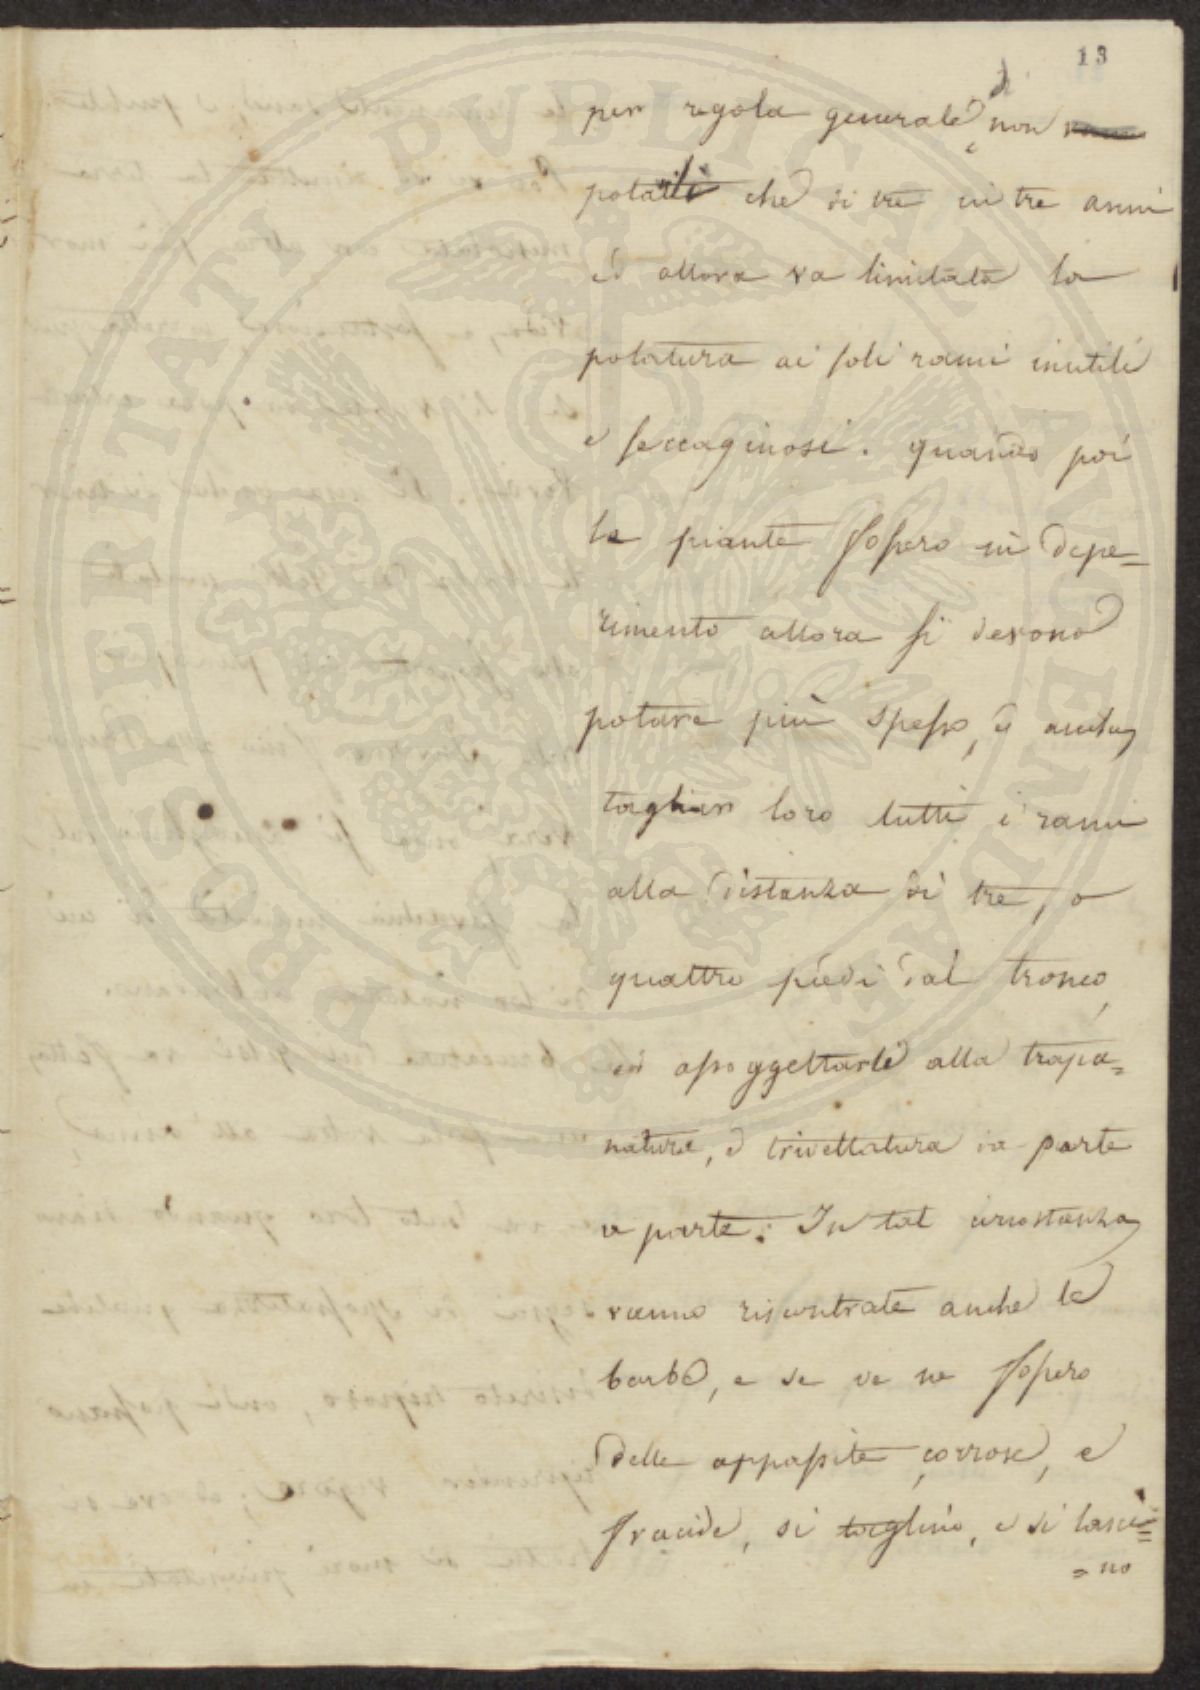 13
per regola generale, non
potati che di tre in tre anni
ed allora va limitata la
potatura ai soli rami inutili
e seccaginosi. quando poi
le piante fossero in depe=
rimento allora si devono
potare più spesso, e anche
tagliar loro tutti i rami
alla distanza di tre, o
quattro piedi dal tronco,
ed assoggettarle alla trapa=
natura, e trivellatura da parte
a parte. In tal circostanza
vanno riscontrate anche le
barbe, e se ve ne fossero
delle appassite corrose, e
fracide, si taglino, e si lasci=
=no
PROSPERITATI PVBLICAE AVGENDAE